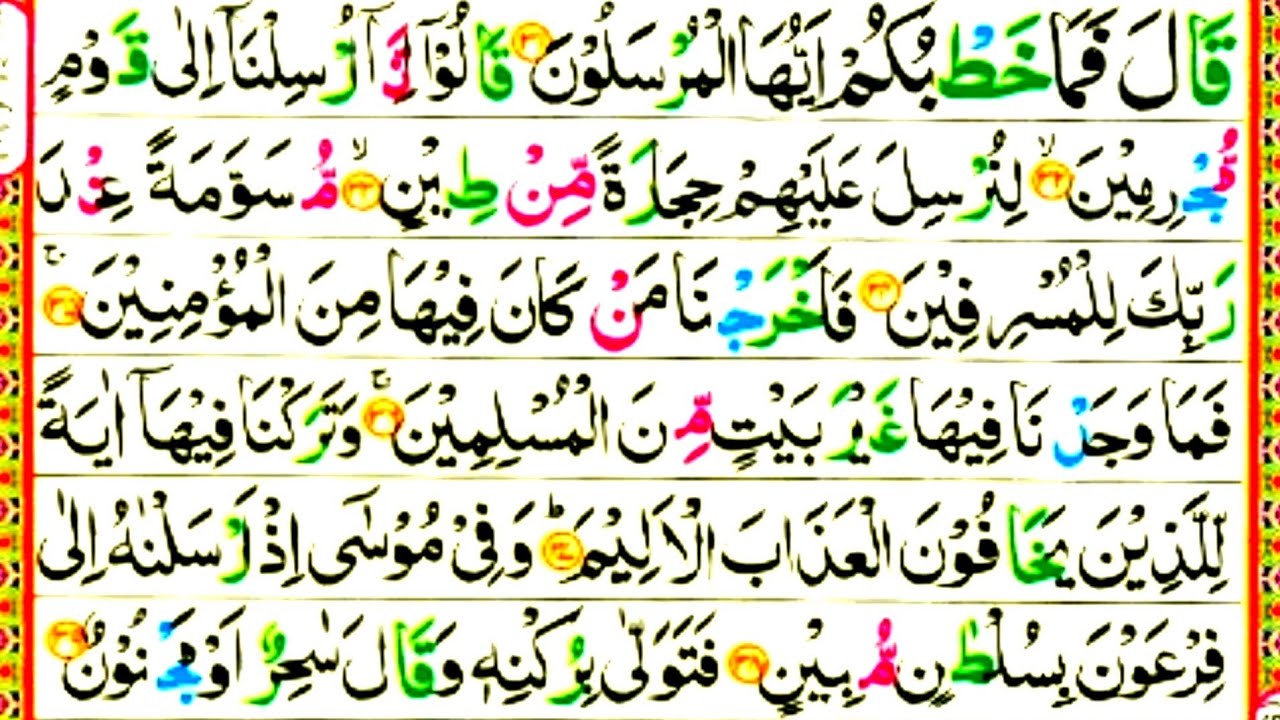 قَالَ فَمَا خَطْبُكُمْ اَيُّهَا الْمُرْسَلُوْنَ ۳۱ قَالُوْۤا اِنَّاۤ اُرْسِلْنَاۤ اِلٰى قَوْمٍ
مُّجْرِمِيْنَ ۙ۳۲ لِنُرْسِلَ عَلَيْهِمْ حِجَارَةً مِّنْ طِيْنٍ ۙ۳۳ مُّسَوَّمَةً عِنْدَ
رَبِّكَ لِلْمُسْرِفِيْنَ ۳۴ فَاَخْرَجْنَا مَنْ كَانَ فِيْهَا مِنَ الْمُؤْمِنِيْنَ ۚ۳۵
فَمَا وَجَدْنَا فِيْهَا غَيْرَ بَيْتٍ مِّنَ الْمُسْلِمِيْنَ ۚ۳۶ وَتَرَكْنَا فِيْهَاۤ اٰيَةً
لِّلَّذِيْنَ يَخَافُوْنَ الْعَذَابَ الْاَلِيْمَ ؕ۳۷ وَفِيْ مُوْسٰۤى اِذْ اَرْسَلْنٰهُ اِلٰى
فِرْعَوْنَ بِسُلْطٰنٍ مُّبِيْنٍ ۳۸ فَتَوَلّٰى بِرُكْنِهٖ وَقَالَ سٰحِرٌ اَوْ مَجْنُوْنٌ ۳۹